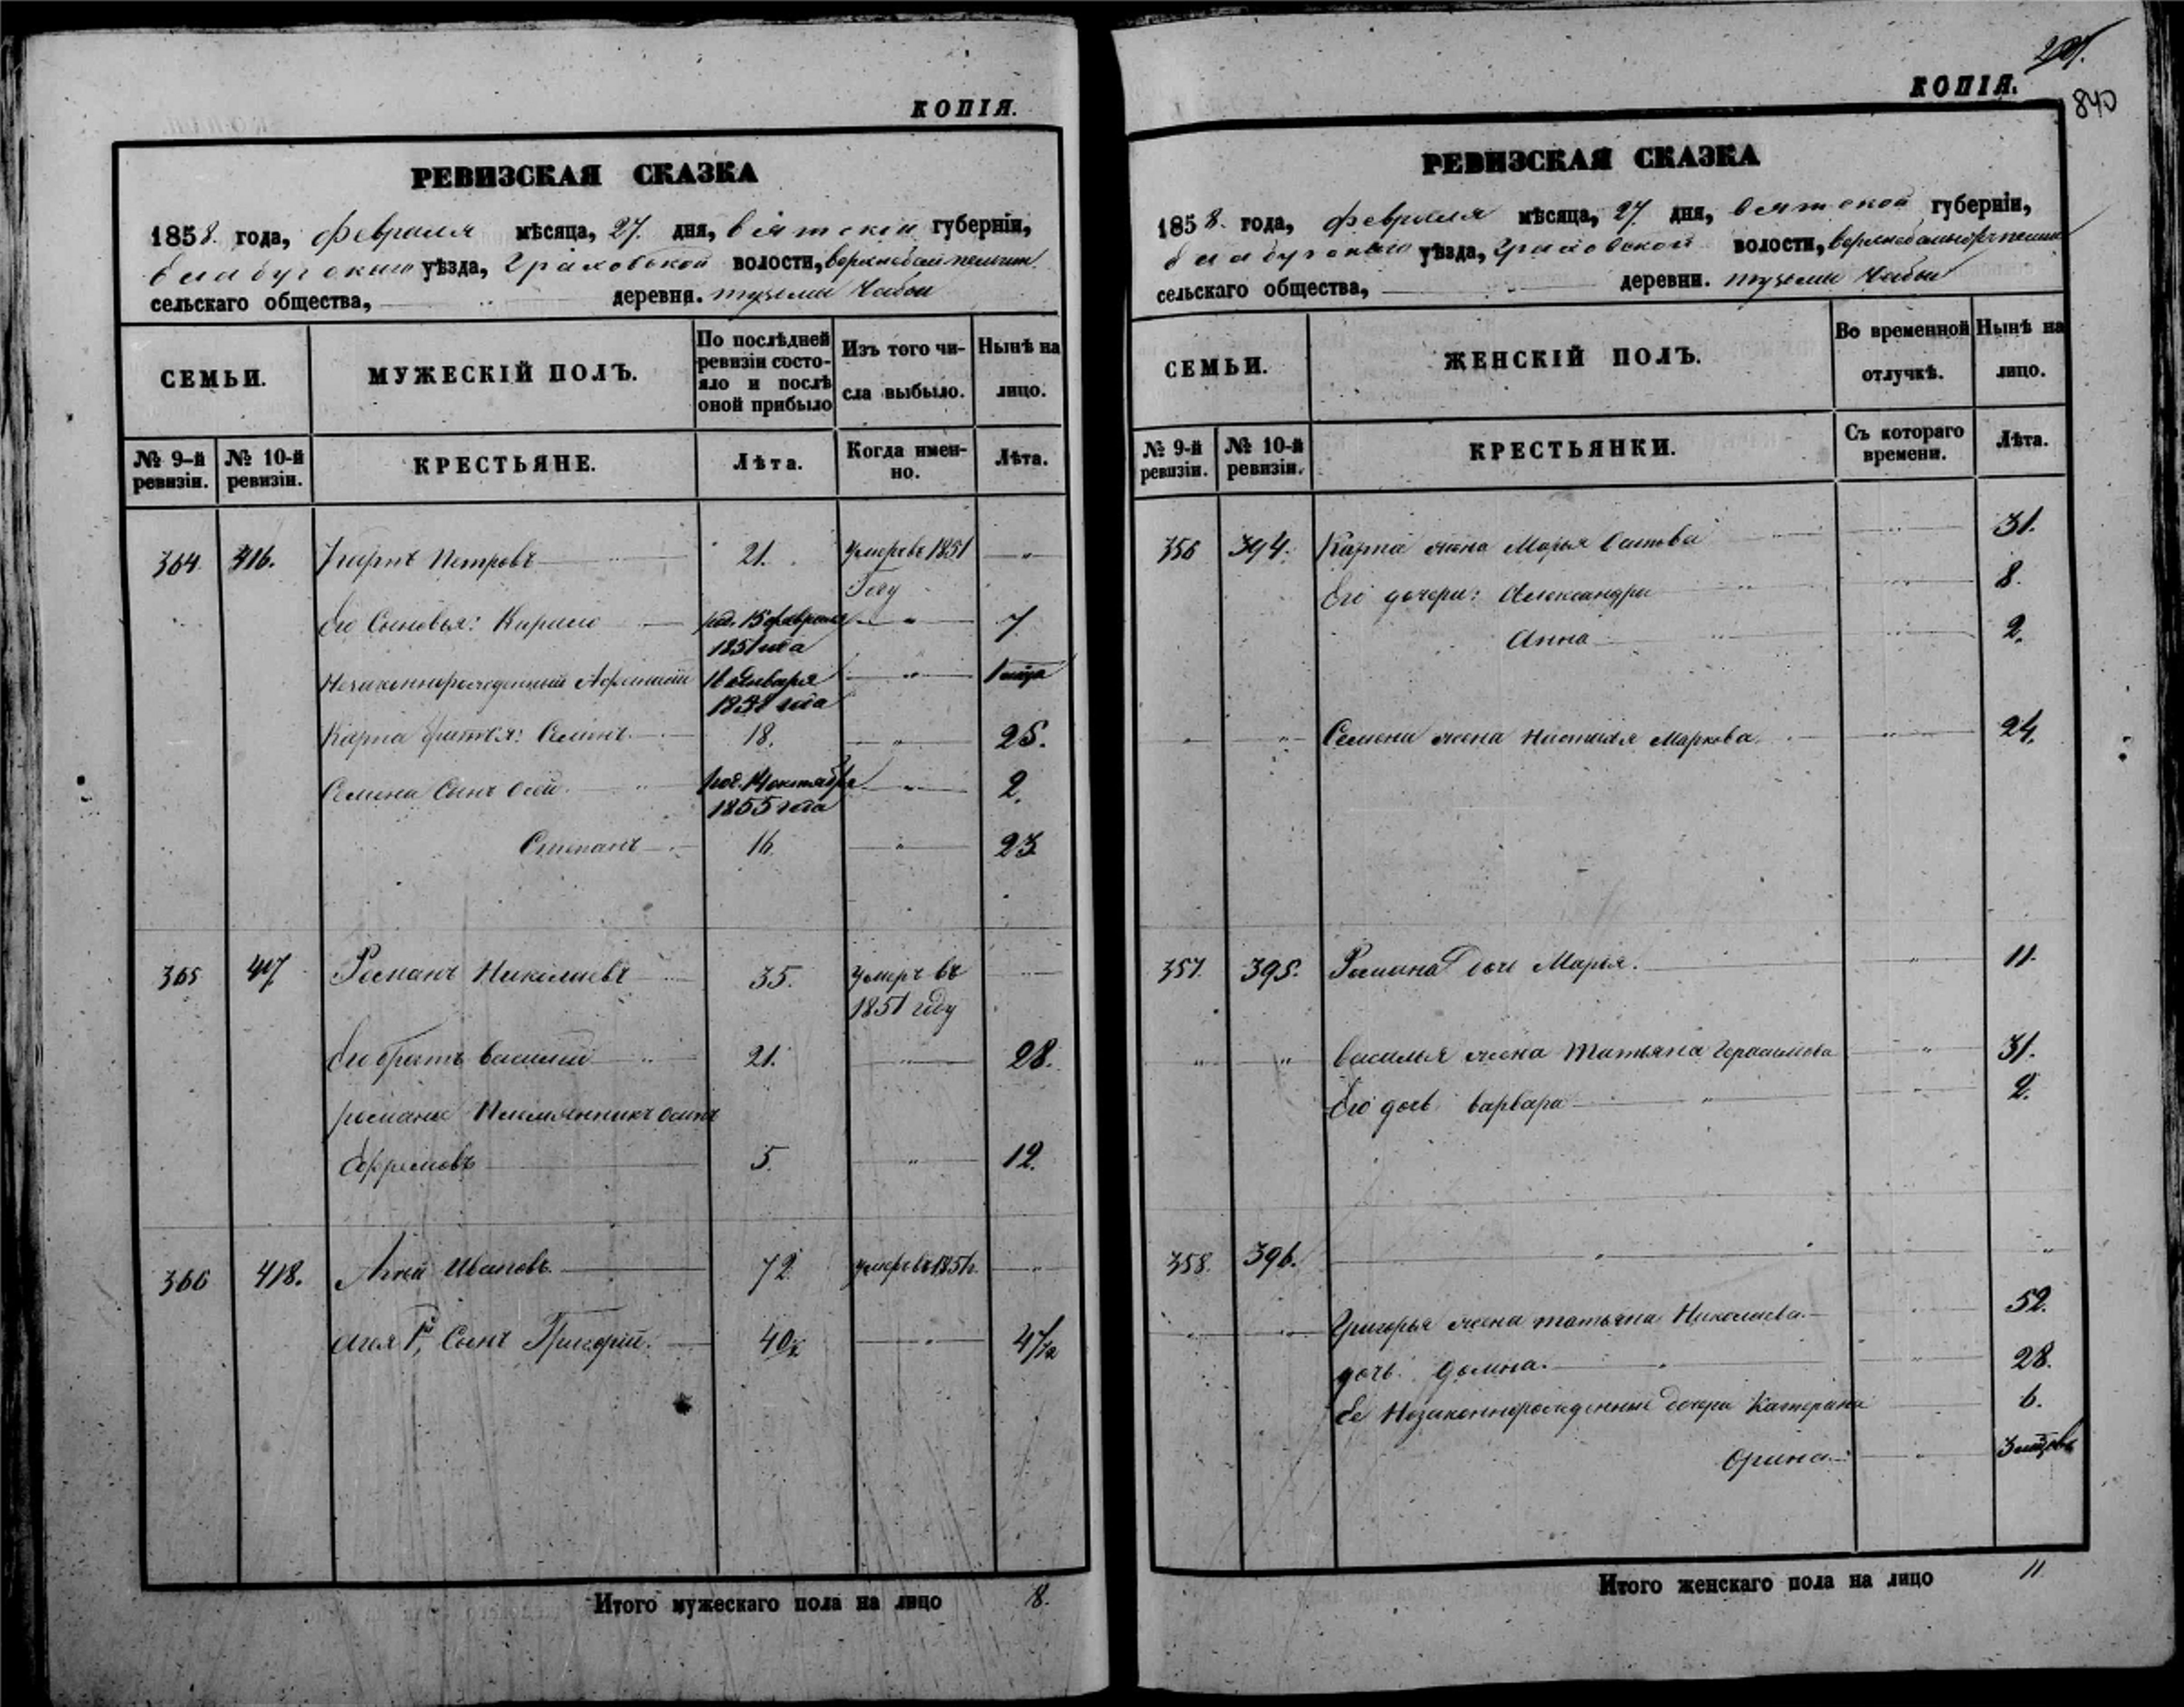 КОПІЯ.
РЕВИЗСКАЯ СКАЗКА
1858. года, февраля мѣсяца, 27. дня, Вятской губерніи,
Елабугскаго уѣзда, Граховской волости,
сельскаго общества, деревня.
СЕМЬИ.
МУЖЕСКІЙ ПОЛЪ.
По послѣдней ревизіи состояло и послѣ оной прибыло
Изъ того числа выбыло.
Нынѣ на лицо.
№ 9-й ревизіи.
№ 10-й ревизіи.
КРЕСТЬЯНЕ.
Лѣта.
Когда именно.
Лѣта.
364. 416. Петровъ 21. Умеръ въ 1851
Году
Его Сыновья: род. 15 февраля 7
1851 года
Незаконнорожденный 16 Января
1858 года
Карпа братья: Семенъ 18. 25.
Семена Сынъ род. 14 октября 2.
1855 года
Степанъ 16. 23
365 417 Романъ Николаевъ 35. Умеръ въ
1851 году
Его братъ Василий 21. 28.
Романа Племянникъ Осипъ
Ефремовъ 5. 12.
366 418. Агей Ивановъ 72 Умеръ въ 1851 г.
Агея Сынъ Григорій. 40 47
Итого мужескаго пола на лицо 8.
201.
КОПІЯ.
840
РЕВИЗСКАЯ СКАЗКА
1858. года, февраля мѣсяца, 27. дня, Вятской губерніи,
Елабугскаго уѣзда, Граховской волости,
сельскаго общества, деревни.
СЕМЬИ.
ЖЕНСКІЙ ПОЛЪ.
Во временной отлучкѣ.
Нынѣ на лицо.
№ 9-й ревизіи.
№ 10-й ревизіи.
КРЕСТЬЯНКИ.
Съ котораго времени.
Лѣта.
356 394. Карпа жена Марья 31.
Его дочери: Александра 8.
Анна 2.
Семена жена Настасья Маркова 24.
357. 395. Романа дочь Марья. 11.
Василья жена Татьяна Герасимова 31.
Его дочь Варвара 2.
358. 396.
Григорья жена Татьяна Николаева. 52.
дочь Домна. 28.
Ее Незаконнорожденные дочери Катерина 6.
Орина 3
Итого женскаго пола на лицо 11